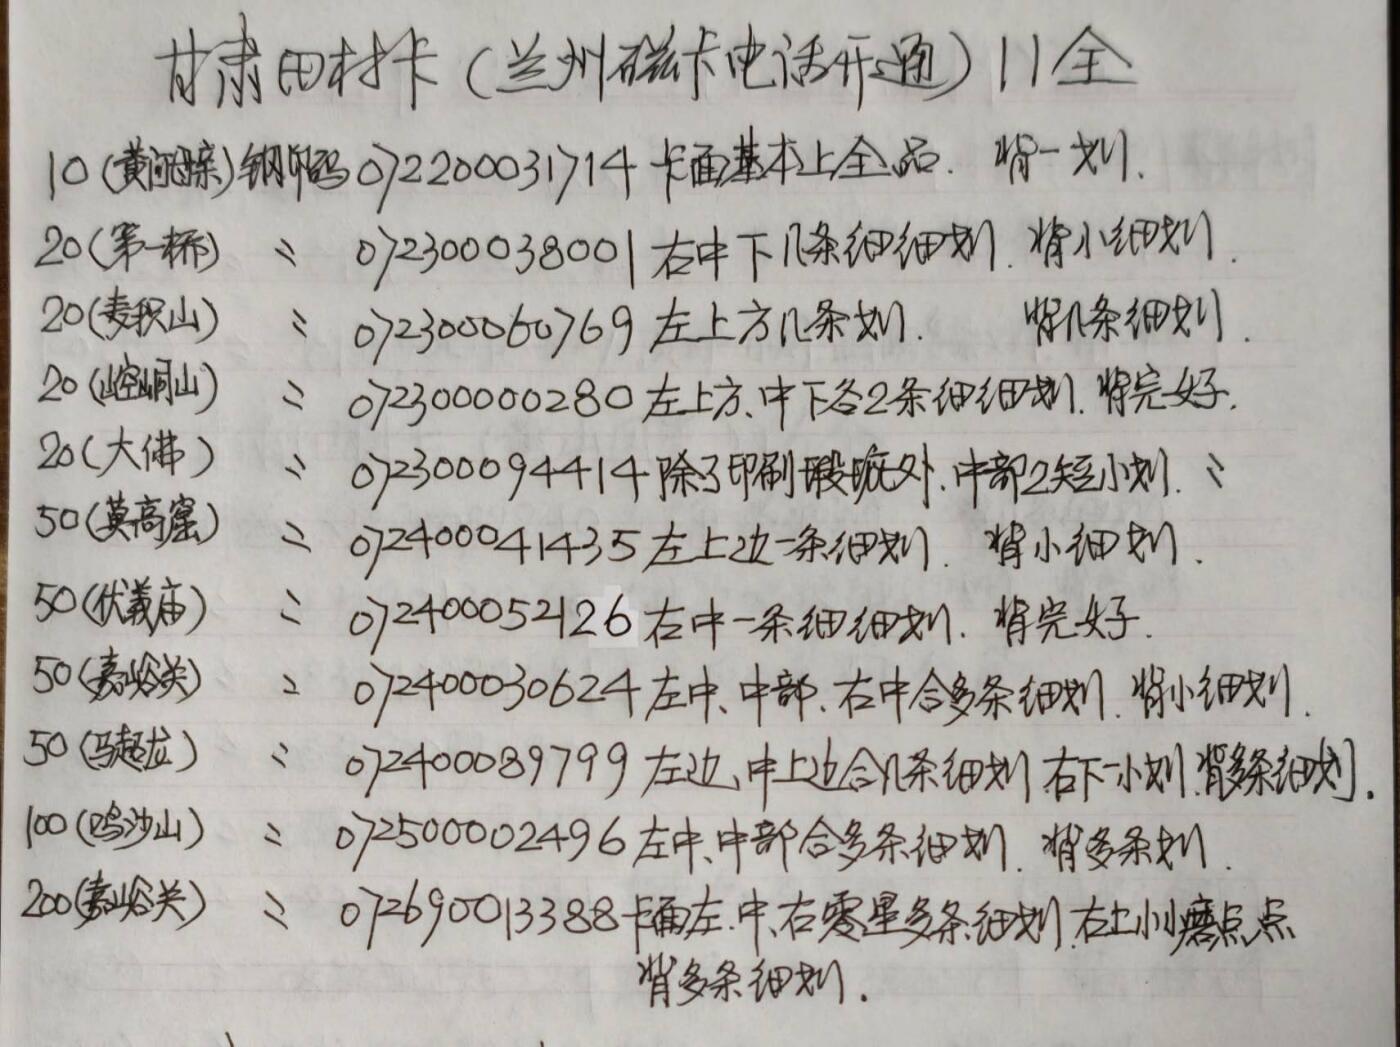 甘肃田村卡（兰州磁卡电话开通）11全
10（黄河母亲）钢印码 072200031714 卡面基本上全品. 背一划.
20（第一桥） 〃 072300038001 右中下几条细细划. 背小细划.
20（麦积山） 〃 072300060769 左上方几条划. 背几条细划.
20（崆峒山） 〃 072300000280 左上方、中下各2条细细划. 背完好.
20（大佛） 〃 072300094414 除了印刷瑕疵外、中部2短小划. 〃
50（莫高窟） 〃 072400041435 左上边一条细划. 背小细划.
50（伏羲庙） 〃 072400052126 右中一条细细划. 背完好.
50（嘉峪关） 〃 072400030624 左中、中部、右中合多条细划. 背小细划.
50（马超龙） 〃 072400089799 左边、中上边合几条细划 右下一小划.背多条细划.
100（鸣沙山） 〃 072500002496 左中、中部合多条细划. 背多条划.
200（嘉峪关） 〃 072690013388 卡面左.中、右零星多条细划.右上小小磨点点
背多条细划.